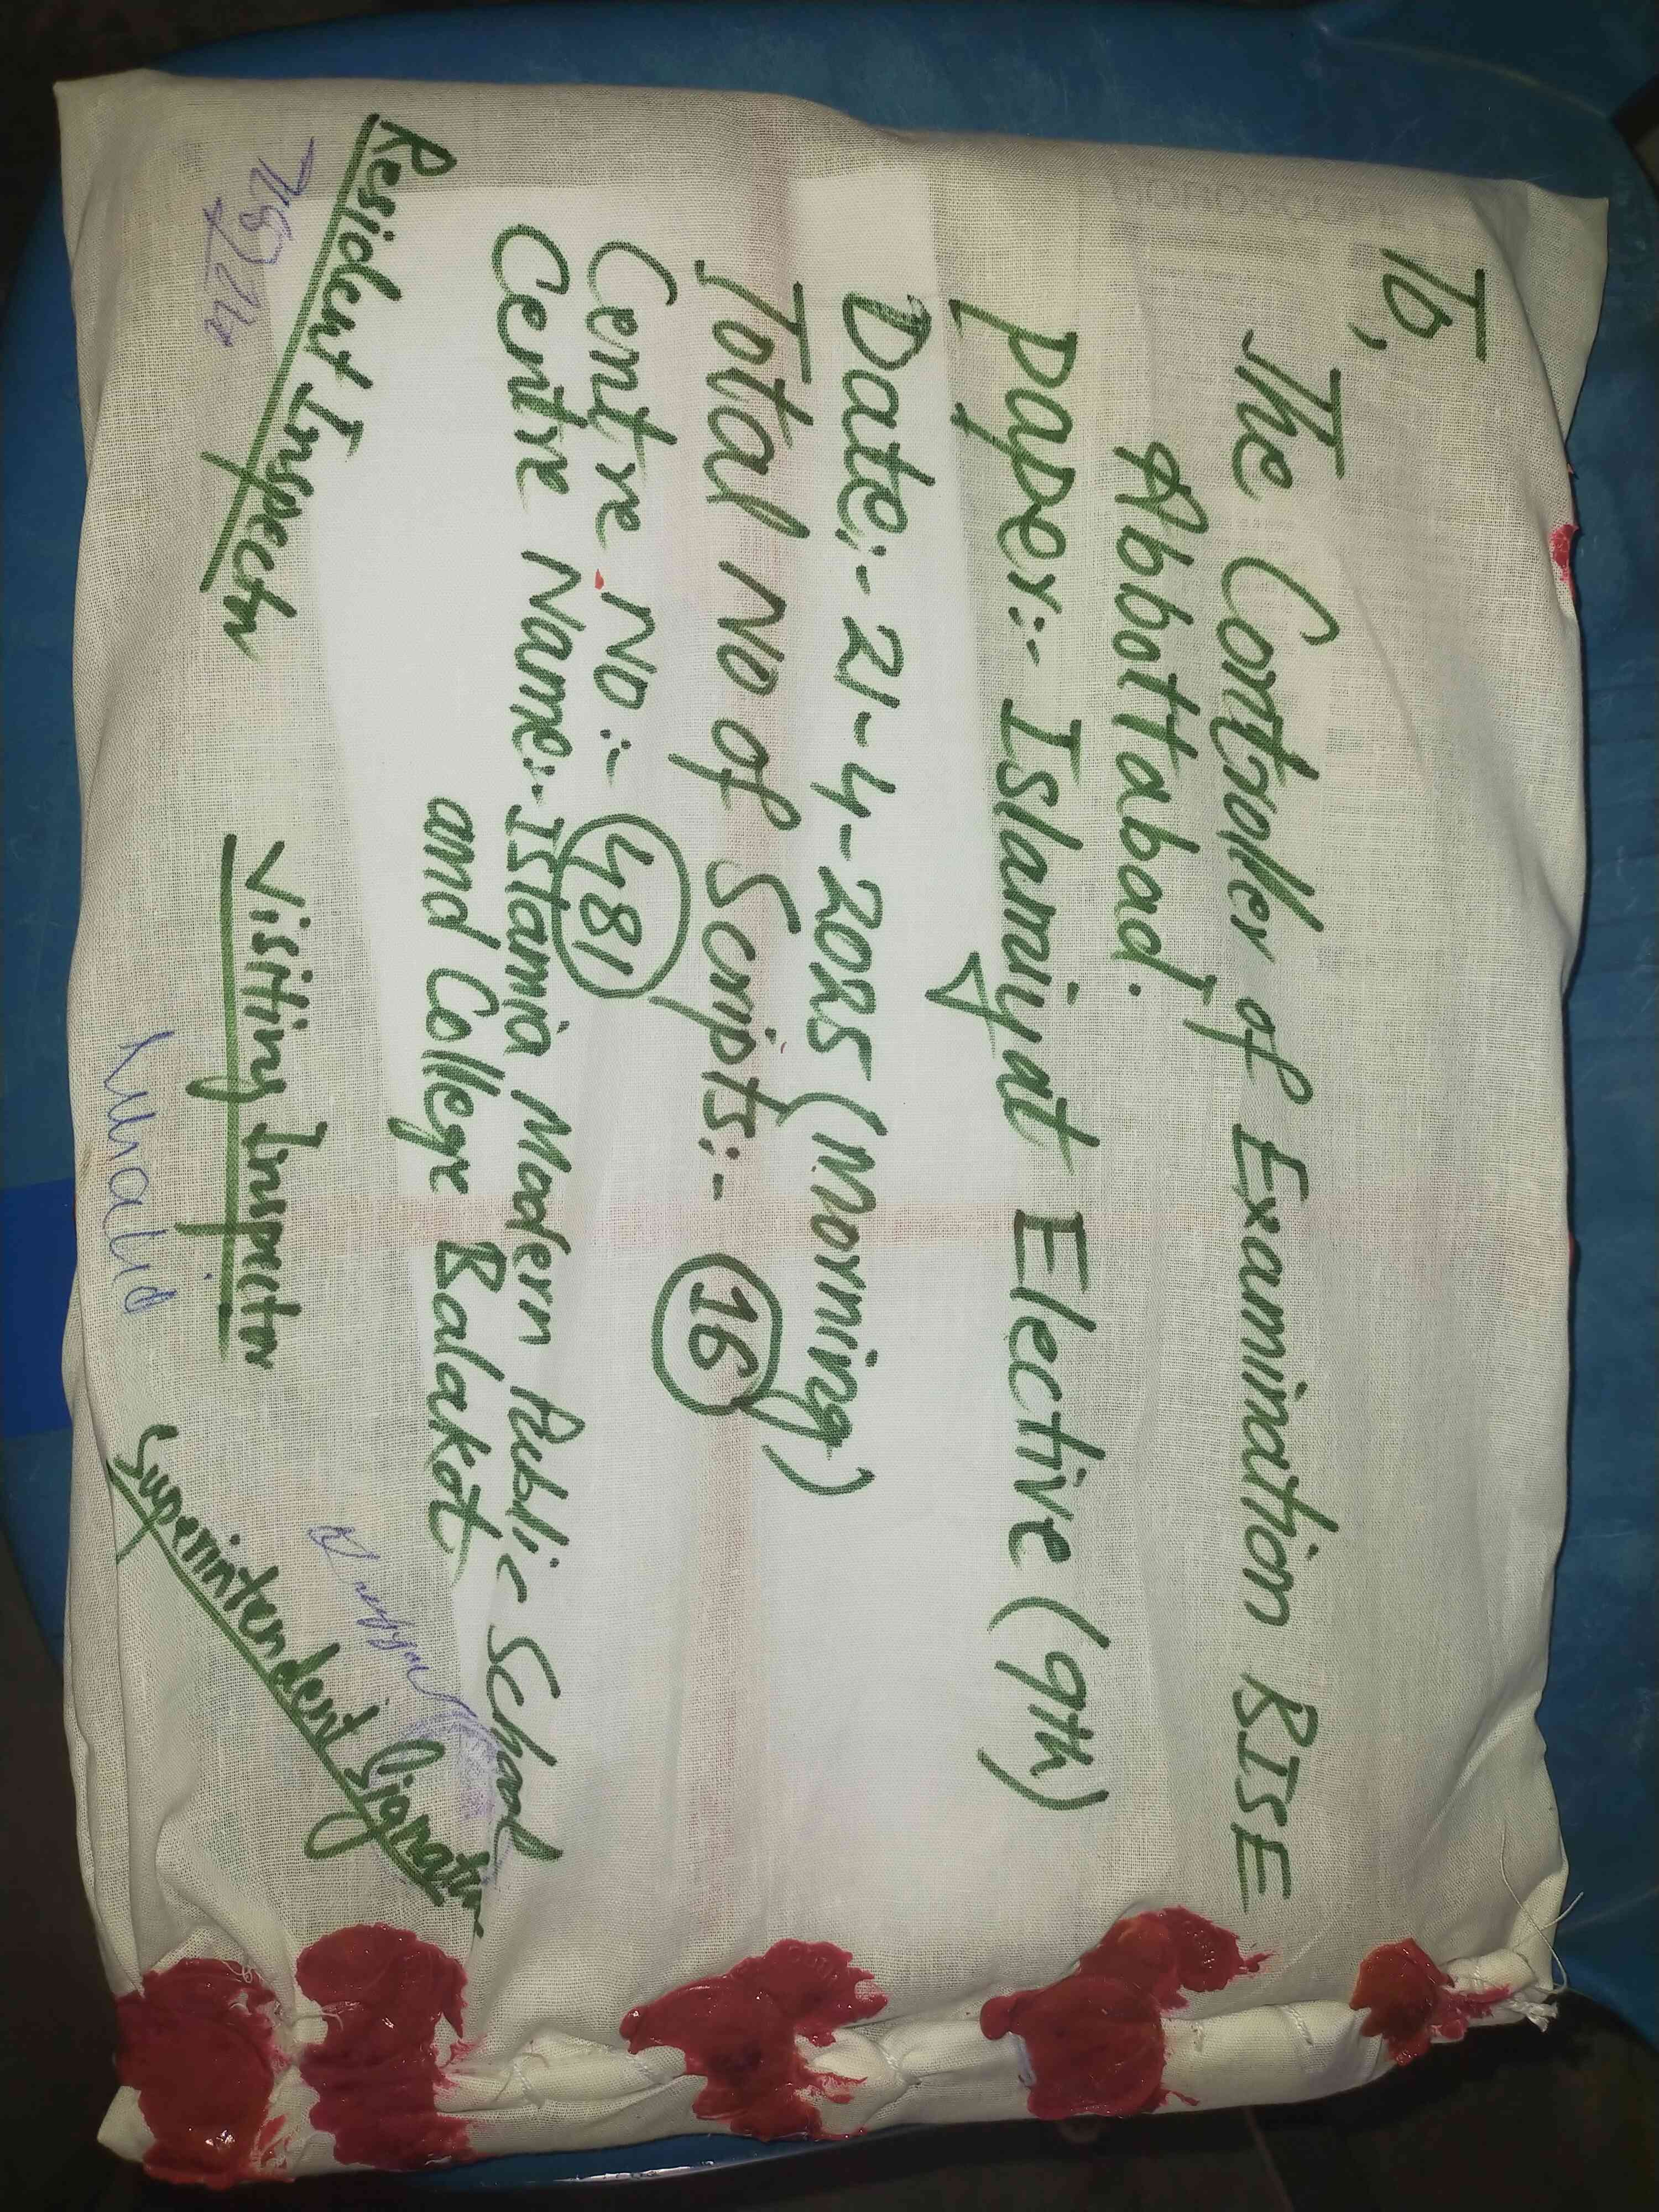 To,
The Controller of Examination BISE
Abbottabad.
Paper:- Islamiyat Elective (9th)
Date:- 21-4-2025 (Morning)
Total No of Scripts:- 16
Centre No:- 481
Centre Name:- Islamia Modern Public School
and College Balakot
Resident Inspector
Visiting Inspector
Khalid
Superintendent Signature